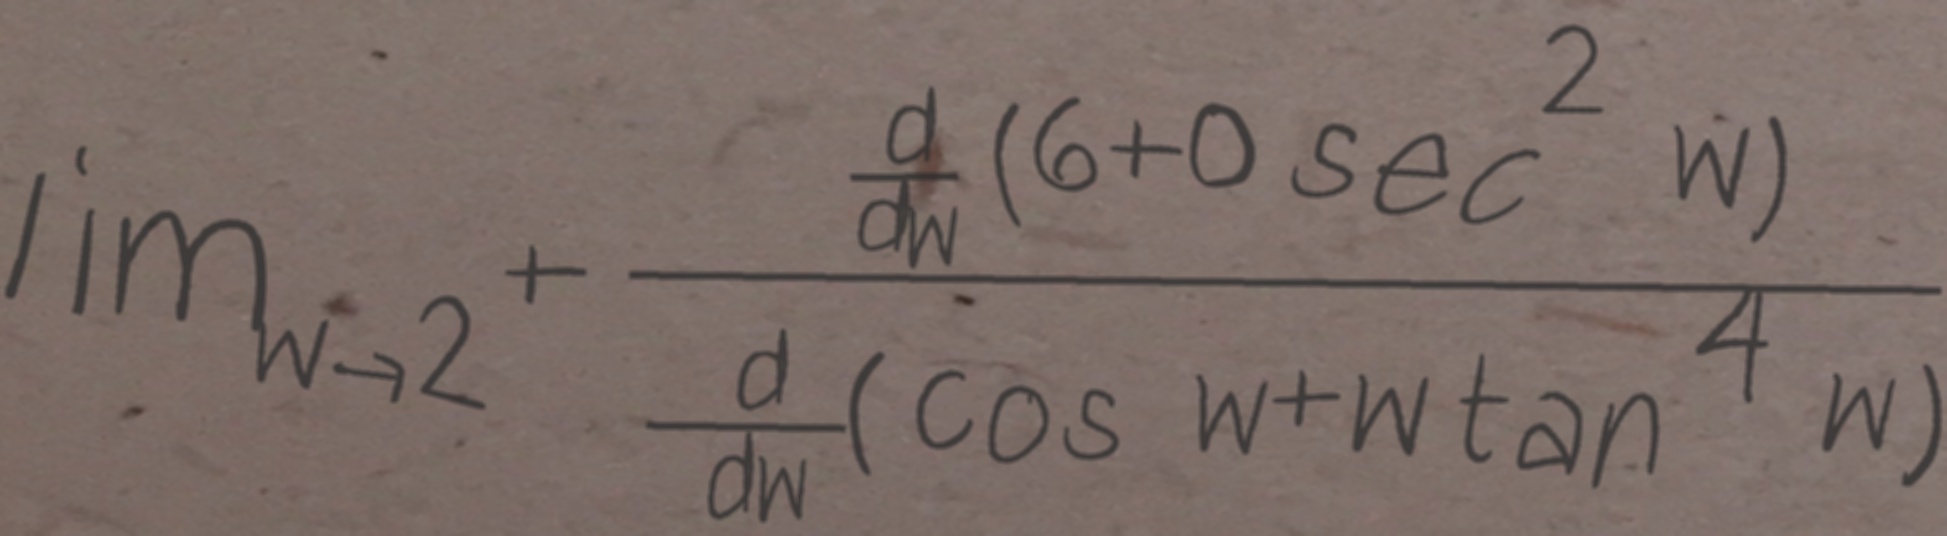 \lim_{w \to 2^+} \frac{\frac{d}{dw}(6+0 \sec^2 w)}{\frac{d}{dw}(\cos w+w \tan^4 w)}